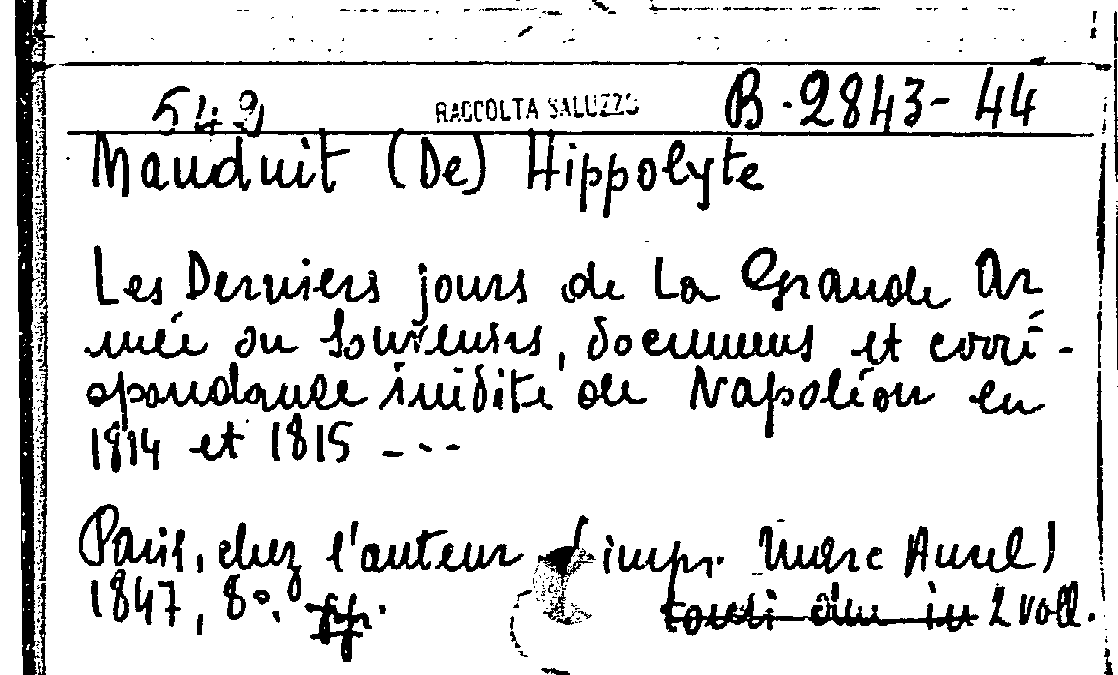 549 RACCOLTA SALUZZO B-2843-44
Mauduit (De) Hippolyte
Les Derniers jours de La Grande Ar
mée ou souvenirs, documens et corré-
spondance inédite de Napoléon en
1814 et 1815 ---
Paris, chez l'auteur (impr. Marc Aurel)
1847, 8º. pp. 2 voll.